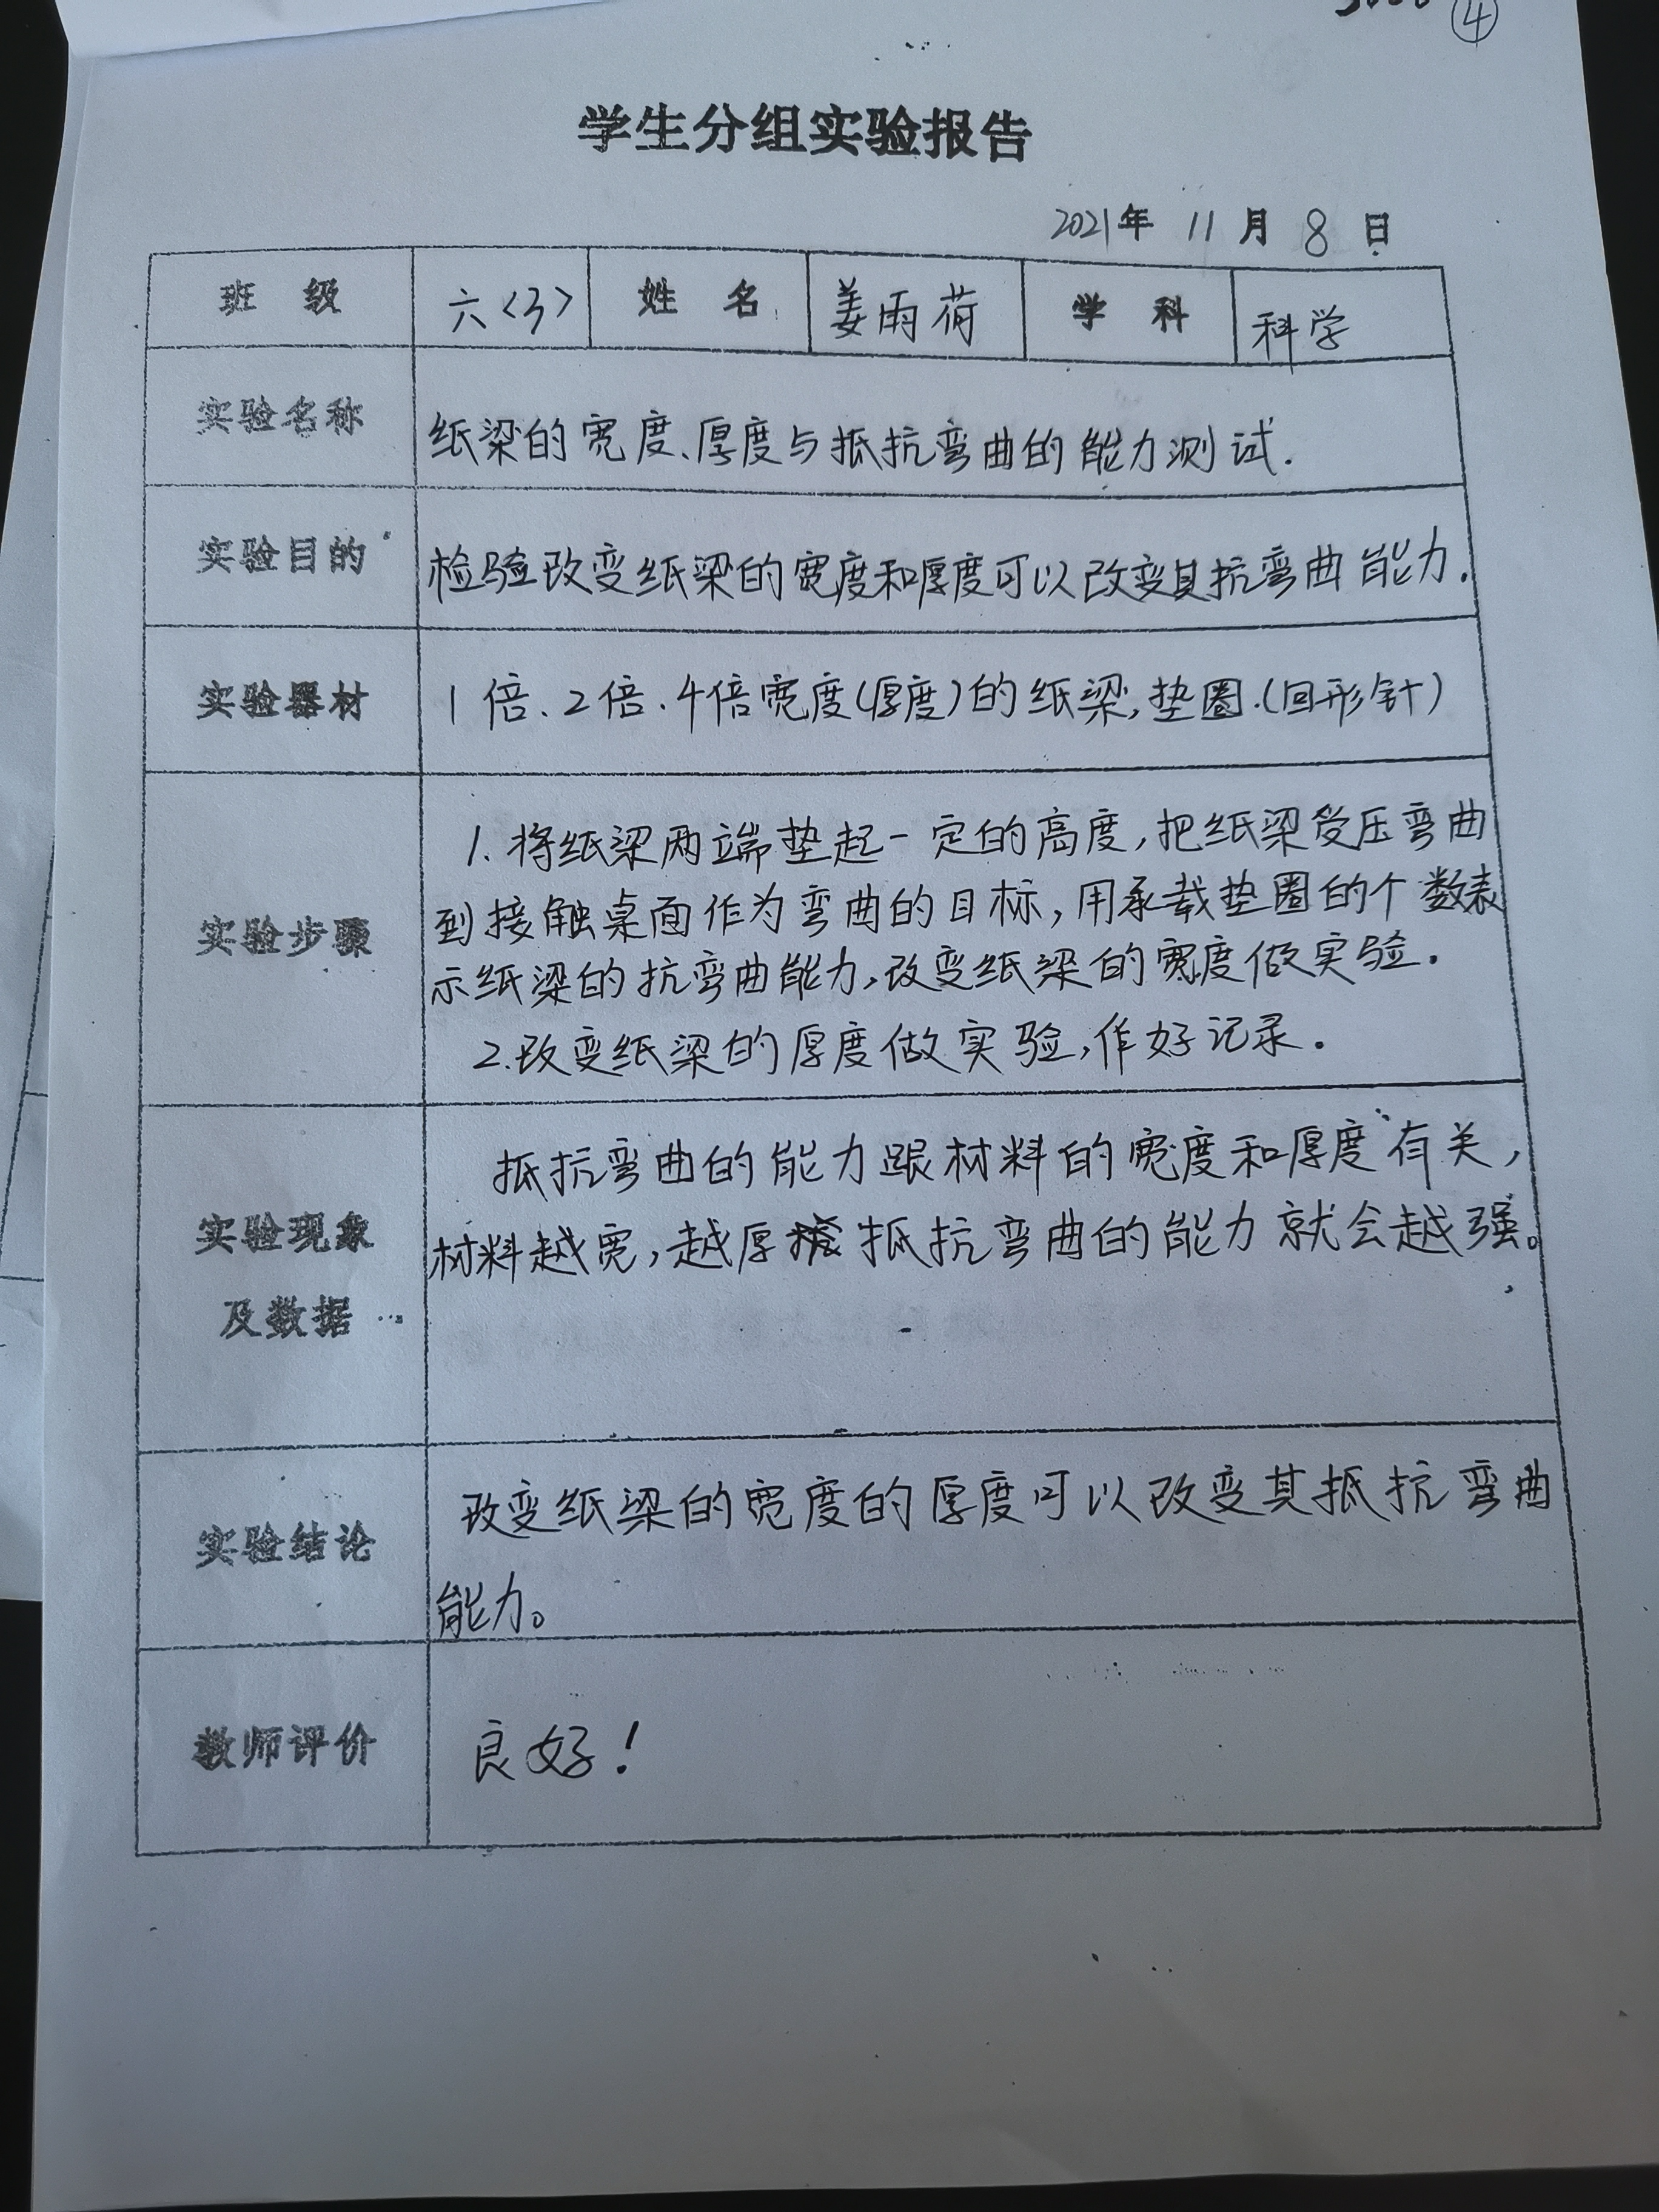 ④
学生分组实验报告
2021年 11月 8日
班 级 六<3> 姓 名 姜雨荷 学 科 科学
实验名称 纸梁的宽度、厚度与抵抗弯曲的能力测试.
实验目的 检验改变纸梁的宽度和厚度可以改变其抗弯曲能力.
实验器材 1倍.2倍.4倍宽度(厚度)的纸梁,垫圈.(回形针)
实验步骤
1.将纸梁两端垫起一定的高度,把纸梁受压弯曲
到接触桌面作为弯曲的目标,用承载垫圈的个数表
示纸梁的抗弯曲能力,改变纸梁的宽度做实验.
2.改变纸梁的厚度做实验,作好记录.
实验现象
及数据
抵抗弯曲的能力跟材料的宽度和厚度有关,
材料越宽,越厚抵抗弯曲的能力就会越强。
实验结论
改变纸梁的宽度的厚度可以改变其抵抗弯曲
能力。
教师评价 良好!